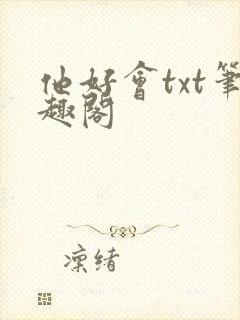 他好會txt筆
趣閣
凜緒